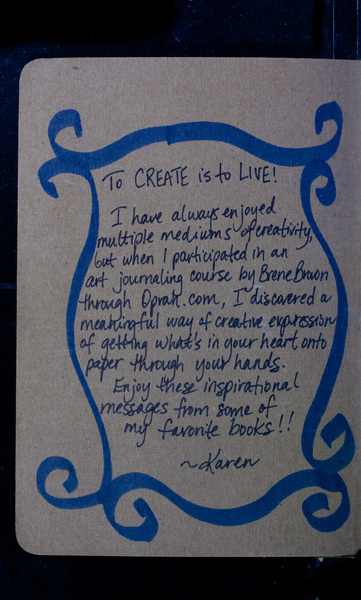 To CREATE is to LIVE!
I have always enjoyed
multiple mediums of creativity,
but when I participated in an
art journaling course by Brene Brown
through Oprah.com, I discovered a
meaningful way of creative expression
of getting what's in your heart onto
paper through your hands.
Enjoy these inspirational
messages from some of
my favorite books!!
~Karen